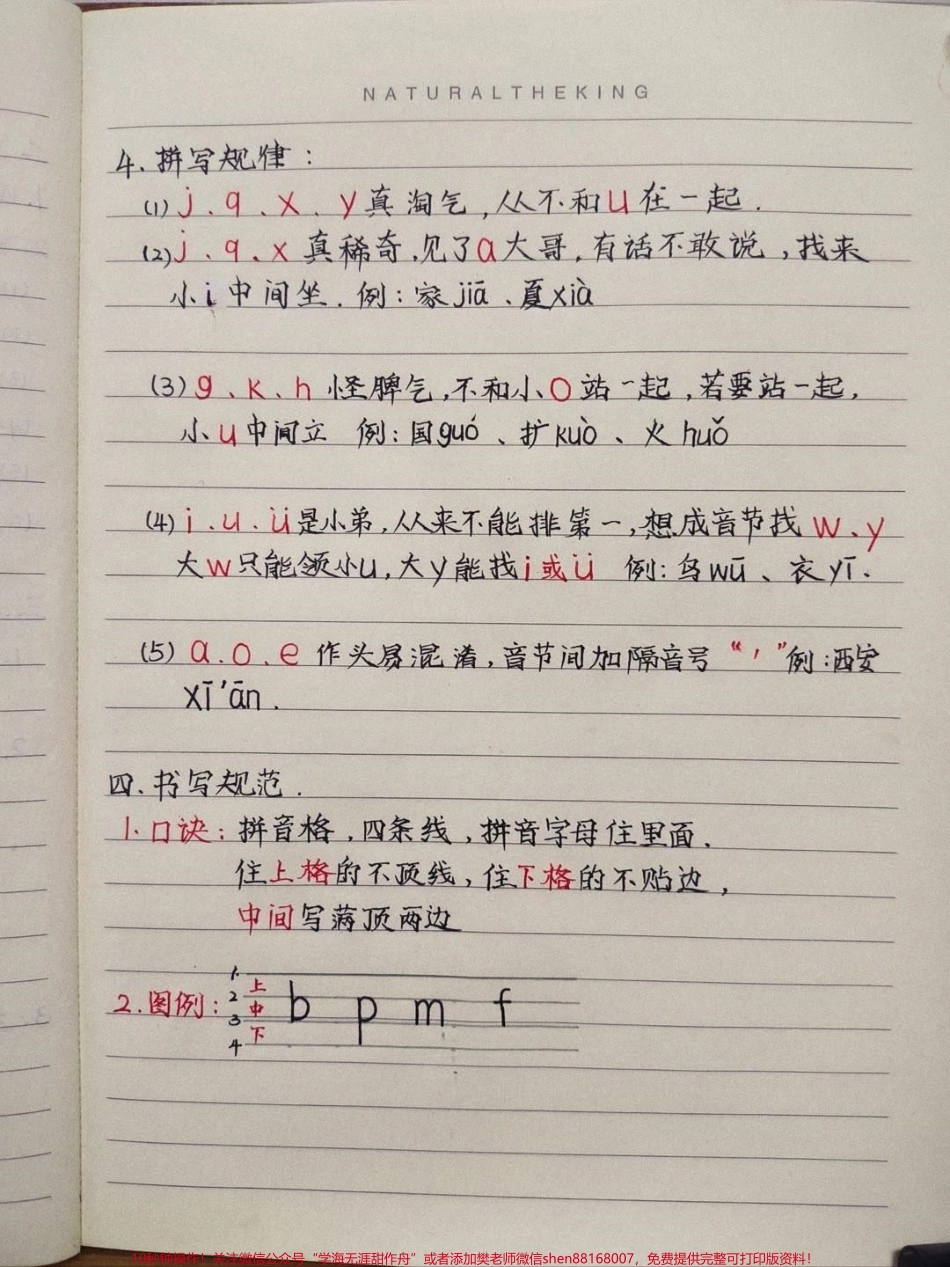 NATURALTHEKING
4.拼写规律：
(1) j.q.x.y真淘气,从不和u在一起.
(2)j.q.x真稀奇,见了a大哥,有话不敢说,找来
小i中间坐.例:家jiā、夏xià
(3) g、k、h怪脾气,不和小o站一起,若要站一起,
小u中间立 例:国guó、扩kuò、火huǒ
(4) i.u.ü是小弟,从来不能排第一,想成音节找w、y
大w只能领小u,大y能找i或ü 例:乌wū、衣yī.
(5) a.o.e作头易混淆,音节间加隔音号“'”例:西安
xī'ān.
四.书写规范.
1.口诀:拼音格,四条线,拼音字母住里面.
住上格的不顶线,住下格的不贴边,
中间写满顶两边
2.图例: 1. 上 b p m f
2 中
3 下
4
关注微信公众号“学海无涯甜作舟”或者添加樊老师微信shen88168007，免费提供完整可打印版资料！